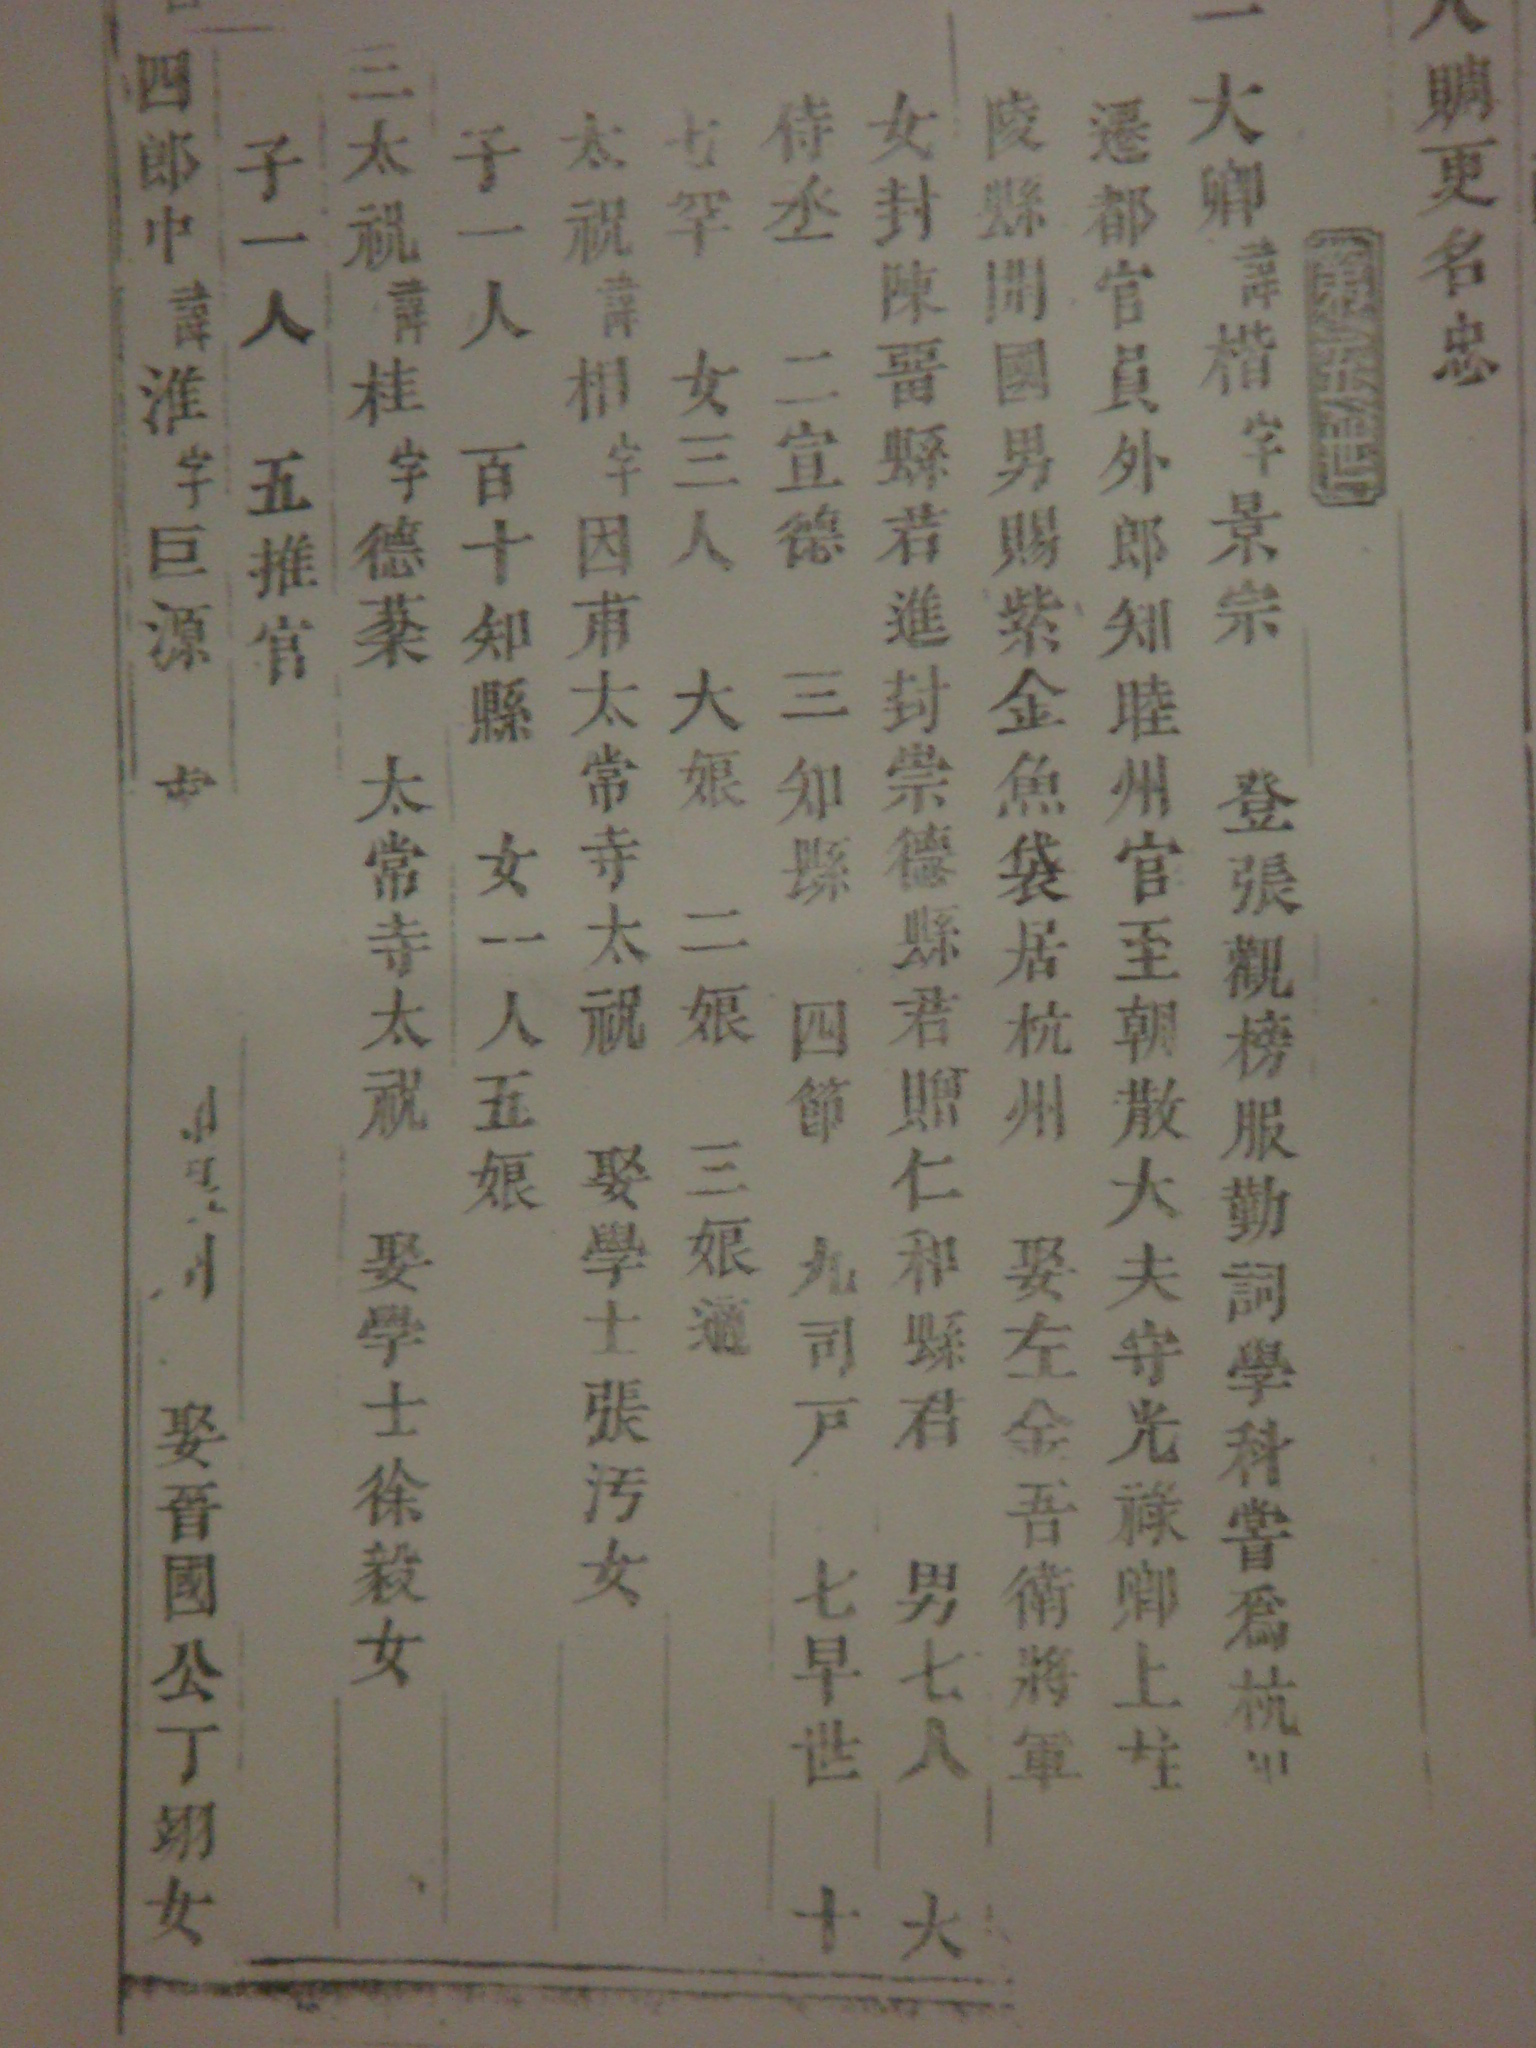 賙更名忠
一大卿諱楷字景宗 登張觀榜服勤詞學科嘗爲杭
遷都官員外郎知睦州官至朝散大夫守光祿卿上柱
陵縣開國男賜紫金魚袋居杭州 娶左金吾衛將軍
女封陳晉縣君進封崇德縣君贈仁和縣君 男七人 大
侍丞 二宣德 三知縣 四節 九司戸 七早世 十
七罕 女三人 大娘 二娘 三娘適
太祝諱相字因甫太常寺太祝 娶學士張汚女
子一人 百十知縣 女一人五娘
三太祝諱桂字德 太常寺太祝 娶學士徐毅女
子一人 五推官
四郎中諱淮字巨源 娶晉國公丁翊女